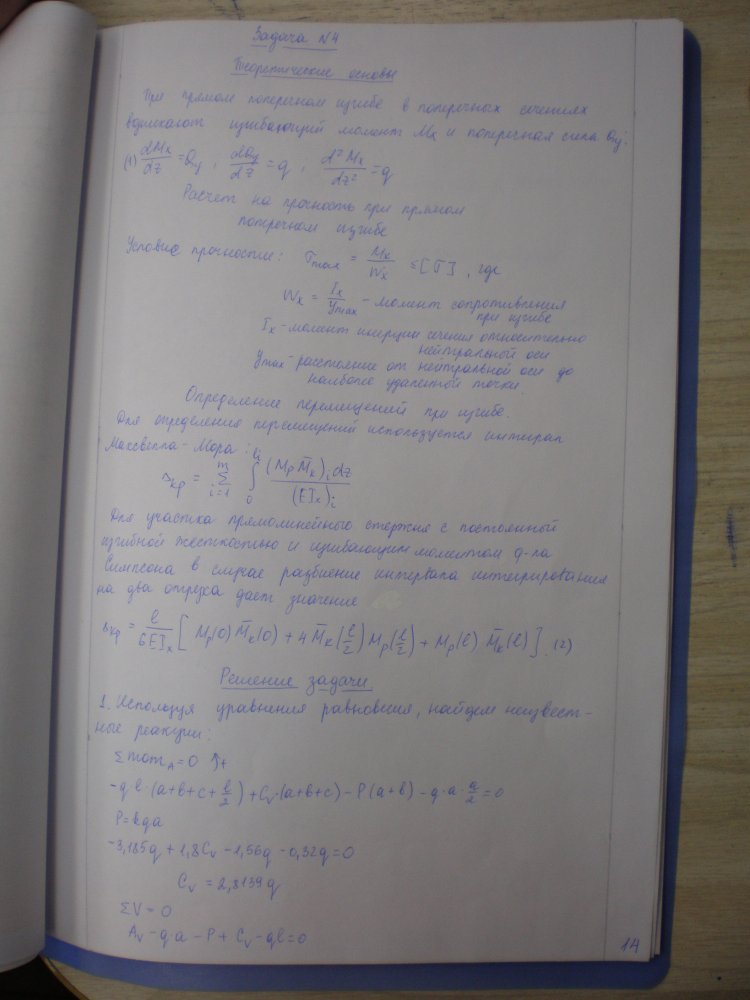 Задача №4
Теоретические основы
При прямом поперечном изгибе в поперечных сечениях
возникают изгибающий момент Mx и поперечная сила Qy:
(1) dMx/dz = Qy ; dQy/dz = q ; d²Mx/dz² = q
Расчет на прочность при прямом
поперечном изгибе
Условие прочности: σmax = Mx/Wx ≤ [σ], где
Wx = Ix/ymax - момент сопротивления
при изгибе
Ix - момент инерции сечения относительно
нейтральной оси
ymax - расстояние от нейтральной оси до
наиболее удаленной точки.
Определение перемещений при изгибе.
Для определения перемещений используется интеграл
Максвелла-Мора:
Δkp = Σ(i=1, m) ∫(0, li) (Mp M̄k)i dz / (EIx)i
Для участка прямолинейные стержня с постоянный
изгибной жесткостью и изгибающим моментом ф-ла
Симпсона в случае разбиение интервала интегрирования
на два отрезка дает значение
Δkp = l/6EIx [ Mp(0) M̄k(0) + 4 M̄k(l/2) Mp(l/2) + Mp(l) M̄k(l) ]. (2)
Решение задачи
1. Используя уравнения равновесия, найдем неизвест-
ные реакции:
Σ momA = 0 ↰+
-q·l·(a+b+c+l/2) + Cv·(a+b+c) - P(a+b) - q·a·a/2 = 0
P = kqa
-3,185q + 1,8Cv - 1,56q - 0,32q = 0
Cv = 2,8139q
ΣV = 0
Av - q·a - P + Cv - ql = 0
14